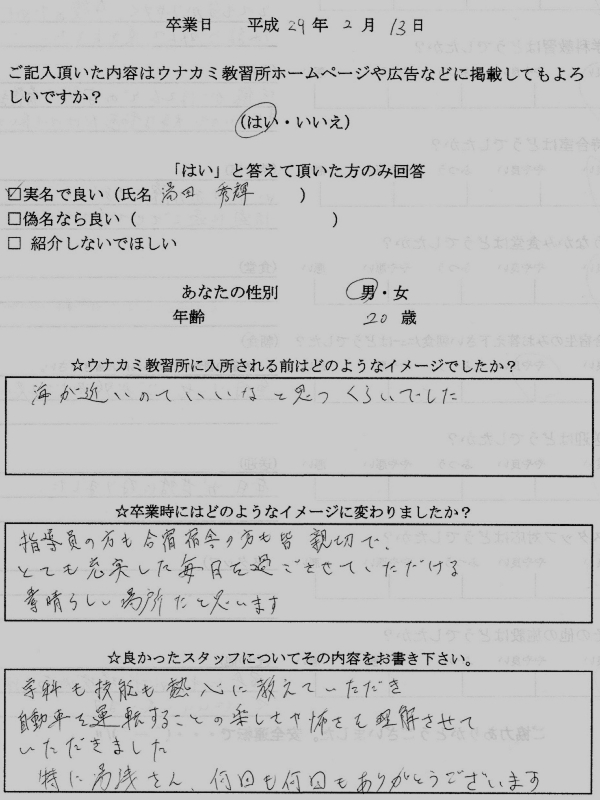 卒業日 平成 29 年 2 月 13 日
ご記入頂いた内容はウナカミ教習所ホームページや広告などに掲載してもよろ
しいですか?
(はい・いいえ)
「はい」と答えて頂いた方のみ回答
☑実名で良い(氏名 湯田 秀輝 )
□偽名なら良い( )
□ 紹介しないでほしい
あなたの性別 男・女
年齢 20 歳
☆ウナカミ教習所に入所される前はどのようなイメージでしたか?
海が近いのでいいなと思うくらいでした
☆卒業時にはどのようなイメージに変わりましたか?
指導員の方も合宿宿舎の方も皆 親切で
とても充実した毎日を過ごさせていただける
素晴らしい場所だと思います
☆良かったスタッフについてその内容をお書き下さい。
学科も技能も熱心に教えていただき
自動車を運転することの楽しさや怖さを理解させて
いただきました
特に湯浅さん、何回も何回もありがとうございます